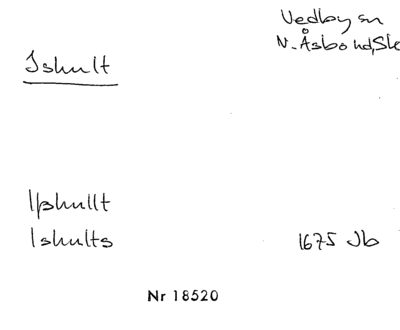 Vedby sn
N. Åsbo hd, Sk
Ishult
Ipshullt
Ishults 1675 Jb
Nr 18520